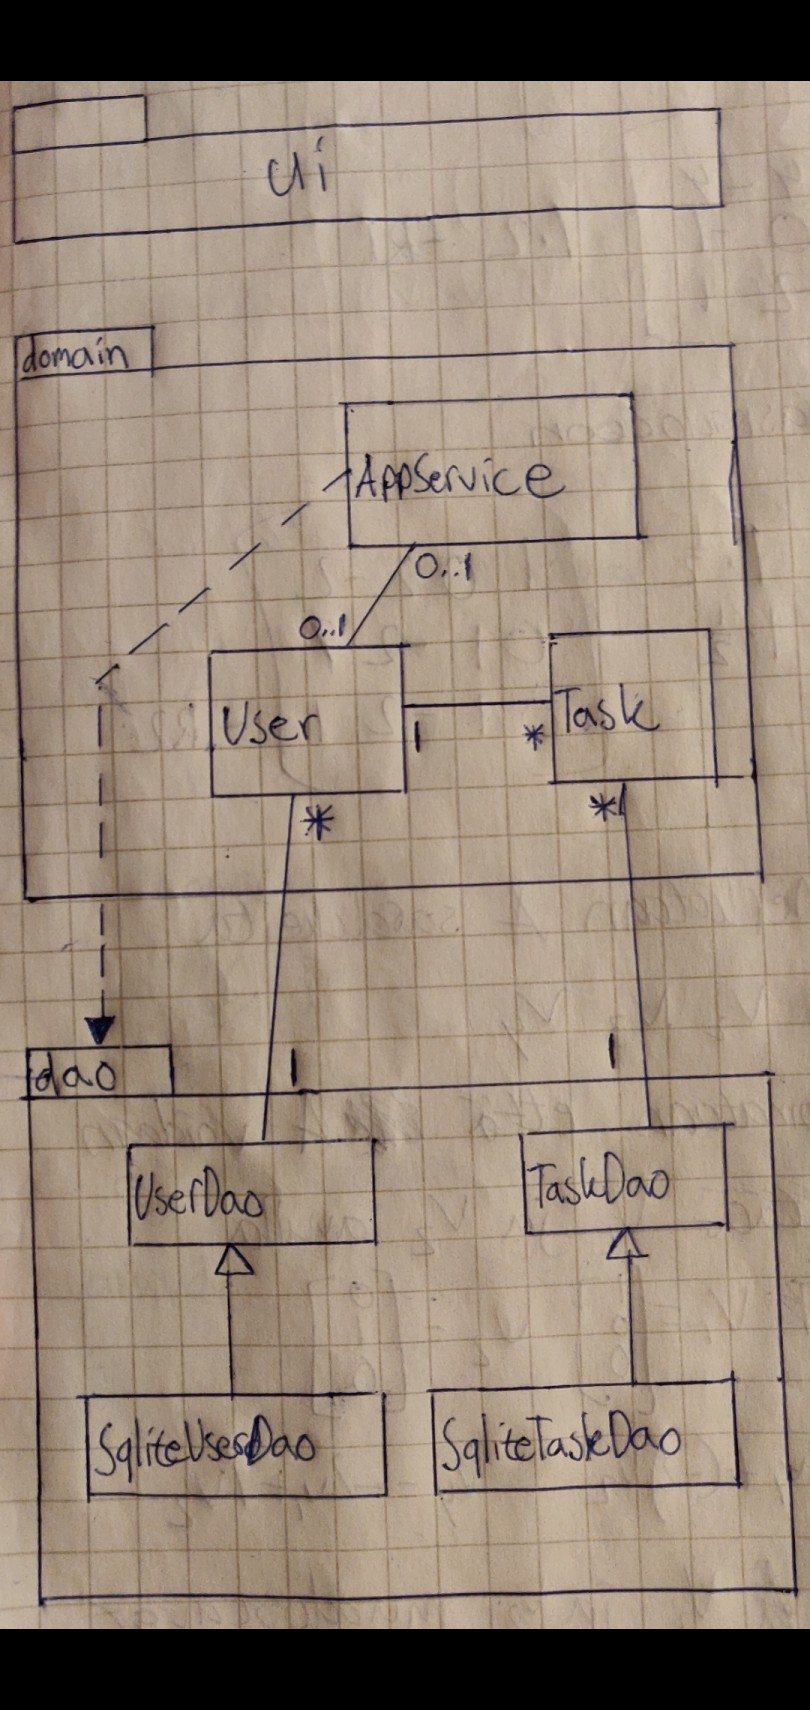 ui
domain
AppService
0..1
0..1
User
1
*
Task
*
*
1
1
dao
UserDao
TaskDao
SqliteUserDao
SqliteTaskDao